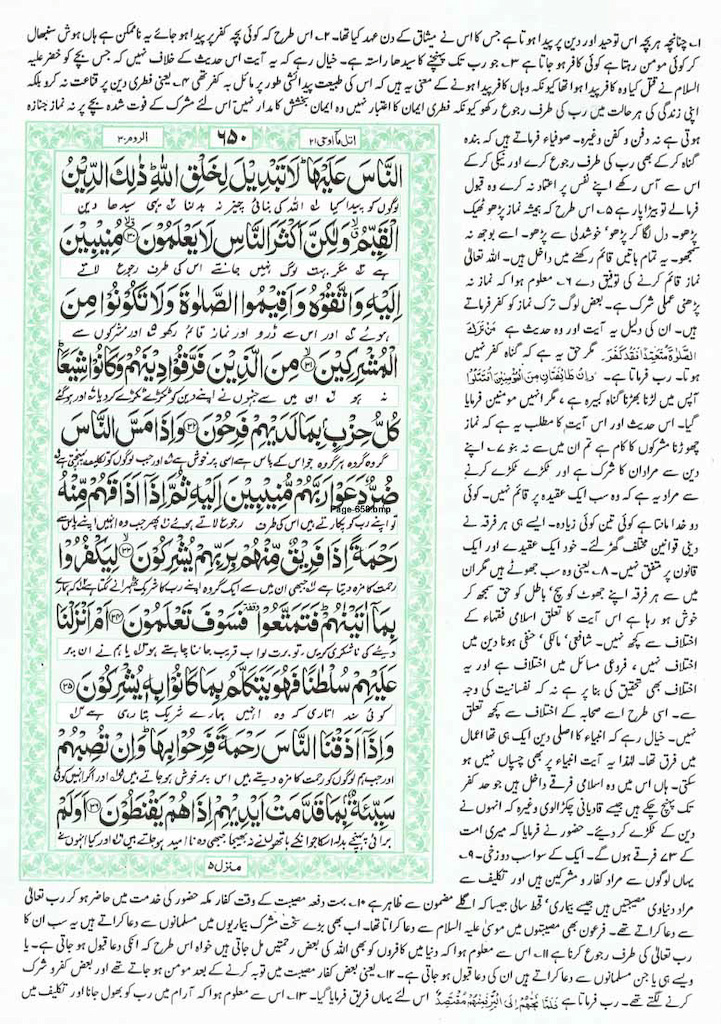 ۱۔ چنانچہ ہر بچہ اس توحید اور دین پر پیدا ہوتا ہے جس کا اس نے میثاق کے دن عہد کیا تھا۔ ۲۔ اس طرح کہ کوئی بچہ کفر پر پیدا ہو جائے یہ ناممکن ہے ہاں ہوش سنبھال
کر کوئی مومن رہتا ہے کوئی کافر ہو جاتا ہے ۳۔ جو رب تک پہنچنے کا سیدھا راستہ ہے۔ خیال رہے کہ یہ آیت اس حدیث کے خلاف نہیں کہ جس بچے کو خضر علیہ
السلام نے قتل کیا وہ کافر پیدا ہوا تھا کیونکہ وہاں کافر پیدا ہونے کے معنی یہ ہیں کہ اس کی طبیعت پیدائشی طور پر مائل بہ کفر تھی ۴۔ یعنی فطری دین پر قناعت نہ کرو بلکہ
اپنی زندگی کی ہر حالت میں رب کی طرف رجوع رکھو کیونکہ فطری ایمان کا اعتبار نہیں وہ ایمان بخشش کا مدار نہیں اس لئے مشرک کے فوت شدہ بچے پر نماز جنازہ
ہوتی ہے نہ دفن و کفن وغیرہ۔ صوفیاء فرماتے ہیں کہ بندہ
گناہ کر کے بھی رب کی طرف رجوع کرے اور نیکی کر کے
اس سے آس رکھے اپنے نفس پر اعتماد نہ کرے وہ قبول
فرمالے تو بیڑا پار ہے ۵۔ اس طرح کہ ہمیشہ نماز پڑھو ٹھیک
پڑھو۔ دل لگا کر پڑھو' خوشدلی سے پڑھو۔ اسے بوجھ نہ
سمجھو۔ یہ تمام باتیں قائم رکھنے میں داخل ہیں۔ اللہ تعالیٰ
نماز قائم کرنے کی توفیق دے ۶۔ معلوم ہوا کہ نماز نہ
پڑھنی عملی شرک ہے۔ بعض لوگ ترک نماز کو کفر فرماتے
ہیں۔ ان کی دلیل یہ آیت اور وہ حدیث ہے مَنْ تَرَكَ
الصَّلٰوةَ مُتَعَمِّدًا فَقَدْ كَفَرَ۔ مگر حق یہ ہے کہ گناہ کفر نہیں
ہوتا۔ رب فرماتا ہے۔ وَاِنْ طَائِفَتَانِ مِنَ الْمُؤْمِنِيْنَ اقْتَتَلُوْا
آپس میں لڑنا بھڑنا گناہ کبیرہ ہے، مگر انہیں مومنین فرمایا
گیا۔ اس حدیث اور اس آیت کا مطلب یہ ہے کہ نماز
چھوڑنا مشرکوں کا کام ہے تم ان میں سے نہ بنو ۷۔ اپنے
دین سے مراد ان کا شرک ہے اور ٹکڑے ٹکڑے کرنے
سے مراد یہ ہے کہ وہ سب ایک عقیدہ پر قائم نہیں۔ کوئی
دو خدا مانتا ہے کوئی تین کوئی زیادہ۔ ایسے ہی ہر فرقہ نے
دینی قوانین مختلف گھڑ لئے۔ خود ایک عقیدے اور ایک
قانون پر متفق نہیں۔ ۸۔ یعنی وہ سب جھوٹے ہیں مگر ان
میں سے ہر فرقہ اپنے جھوٹ کو سچ' باطل کو حق سمجھ کر
خوش ہو رہا ہے اس آیت کا تعلق اسلامی فقہاء کے
اختلاف سے کچھ نہیں۔ شافعی' مالکی' حنفی ہونا دین میں
اختلاف نہیں، فروعی مسائل میں اختلاف ہے اور یہ
اختلاف بھی تحقیق کی بنا پر ہے نہ کہ نفسانیت کی وجہ
سے۔ اسی طرح اسے صحابہ کے اختلاف سے کچھ تعلق
نہیں۔ خیال رہے کہ انبیاء کا اصلی دین ایک ہی تھا اعمال
میں فرق تھا۔ لہٰذا یہ آیت انبیاء پر بھی چسپاں نہیں ہو
سکتی۔ ہاں اس میں وہ اسلامی فرقے داخل ہیں جو حد کفر
تک پہنچ چکے ہیں جیسے قادیانی چکڑالوی وغیرہ کہ انہوں نے
دین کے ٹکڑے کر دیئے۔ حضور نے فرمایا کہ میری امت
کے ۷۳ فرقے ہوں گے۔ ایک کے سوا سب دوزخی۔ ۹۔
یہاں لوگوں سے مراد کفار و مشرکین ہیں اور تکلیف سے
اتل مآ اوحی ۲۱
۶۵۰
الروم ۳۰
النَّاسَ عَلَيْهَا ۚ لَا تَبْدِيْلَ لِخَلْقِ اللّٰهِ ۚ ذٰلِكَ الدِّيْنُ
لوگوں کو پیدا کیا اللہ کی بنائی چیز نہ بدلنا یہی سیدھا دین
الْقَيِّمُ ۙ وَلٰكِنَّ اَكْثَرَ النَّاسِ لَا يَعْلَمُوْنَ ۝۳۰ مُنِيْبِيْنَ
ہے مگر بہت لوگ نہیں جانتے اس کی طرف رجوع لاتے
اِلَيْهِ وَاتَّقُوْهُ وَاَقِيْمُوا الصَّلٰوةَ وَلَا تَكُوْنُوْا مِنَ
ہوئے اور اس سے ڈرو اور نماز قائم رکھو اور مشرکوں سے
الْمُشْرِكِيْنَ ۝۳۱ مِنَ الَّذِيْنَ فَرَّقُوْا دِيْنَهُمْ وَكَانُوْا شِيَعًا ؕ
نہ ہو ان میں سے جنہوں نے اپنے دین کو ٹکڑے ٹکڑے کر دیا اور ہو گئے
كُلُّ حِزْبٍۭ بِمَا لَدَيْهِمْ فَرِحُوْنَ ۝۳۲ وَاِذَا مَسَّ النَّاسَ
گروہ گروہ ہر گروہ جو اس کے پاس ہے اسی پر خوش ہے اور جب لوگوں کو تکلیف پہنچتی ہے
ضُرٌّ دَعَوْا رَبَّهُمْ مُّنِيْبِيْنَ اِلَيْهِ ثُمَّ اِذَاۤ اَذَاقَهُمْ مِّنْهُ
Page-650.bmp
تو اپنے رب کو پکارتے ہیں اس کی طرف رجوع لاتے ہوئے پھر جب وہ انہیں اپنے پاس سے
رَحْمَةً اِذَا فَرِيْقٌ مِّنْهُمْ بِرَبِّهِمْ يُشْرِكُوْنَ ۝۳۳ لِيَكْفُرُوْا
رحمت کا مزہ دیتا ہے جبھی ان میں سے ایک گروہ اپنے رب کا شریک ٹھہرانے لگتا ہے کہ ہمارے
بِمَاۤ اٰتَيْنٰهُمْ ؕ فَتَمَتَّعُوْا ٙ فَسَوْفَ تَعْلَمُوْنَ ۝۳۴ اَمْ اَنْزَلْنَا
دیئے کی ناشکری کریں، تو برت لو اب قریب جاننا چاہتے ہو یا ہم نے ان پر
عَلَيْهِمْ سُلْطٰنًا فَهُوَ يَتَكَلَّمُ بِمَا كَانُوْا بِهٖ يُشْرِكُوْنَ ۝۳۵
کوئی سند اتاری کہ وہ انہیں ہمارے شریک بتا رہی ہے
وَاِذَاۤ اَذَقْنَا النَّاسَ رَحْمَةً فَرِحُوْا بِهَا ؕ وَاِنْ تُصِبْهُمْ
اور جب ہم لوگوں کو رحمت کا مزہ دیتے ہیں اس پر خوش ہو جاتے ہیں اور اگر انہیں کوئی
سَيِّئَةٌۢ بِمَا قَدَّمَتْ اَيْدِيْهِمْ اِذَا هُمْ يَقْنَطُوْنَ ۝۳۶ اَوَلَمْ
برائی پہنچے بدلہ اس کا جو ان کے ہاتھوں نے بھیجا جبھی وہ ناامید ہو جاتے ہیں اور کیا انہوں نے
منزل ۵
مراد دنیاوی مصیبتیں ہیں جیسے بیماری' قحط سالی جیسا کہ اگلے مضمون سے ظاہر ہے ۱۰۔ بہت دفعہ مصیبت کے وقت کفار مکہ حضور کی خدمت میں حاضر ہو کر رب تعالیٰ
سے دعا کراتے تھے۔ فرعون بھی مصیبتوں میں موسیٰ علیہ السلام سے دعا کراتا تھا۔ اب بھی بڑے سخت مشرک بیماریوں میں مسلمانوں سے دعا کراتے ہیں یہ سب ان کا
رب تعالیٰ کی طرف رجوع کرنا ہے ۱۱۔ اس سے معلوم ہوا کہ دنیا میں کافروں کو بھی اللہ کی بعض رحمتیں مل جاتی ہیں خواہ اس طرح کہ انکی دعا قبول ہو جاتی ہے۔ یا
ویسے ہی یا جن مسلمانوں سے دعا کراتے ہیں ان کی دعا قبول ہو جاتی ہے۔ ۱۲۔ یعنی بعض کفار مصیبت میں توبہ کرنے کے بعد مومن ہو جاتے تھے اور بعض کفر و شرک
کرنے لگتے تھے۔ رب فرماتا ہے فَلَمَّا نَجّٰهُمْ اِلَى الْبَرِّ فَمِنْهُمْ مُّقْتَصِدٌ اس لئے یہاں فریق فرمایا گیا۔ ۱۳۔ اس سے معلوم ہوا کہ آرام میں رب کو بھول جانا اور تکلیف میں